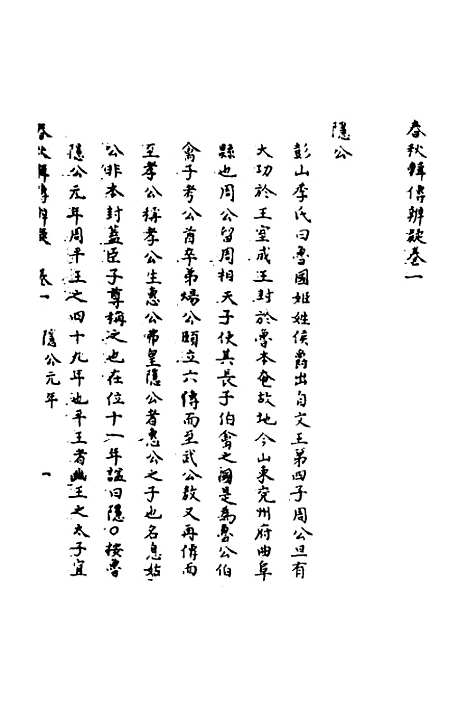 春秋輯傳辨疑卷一
隱公
彭山李氏曰魯國姬姓侯爵出自文王第四子周公旦有
大功於王室成王封於魯本奄故地今山東兖州府曲阜
縣也周公留周相天子使其長子伯禽之國是為魯公伯
禽子考公酋卒弟煬公熙立六傳而至武公敖又再傳而
至孝公稱孝公生惠公弗皇隱公者惠公之子也名息姑
公非本封蓋臣子尊稱之也在位十一年謚曰隱○按魯
隱公元年周平王之四十九年也平王者幽王之太子宜
春秋輯傳辨疑 卷一 隱公元年 一